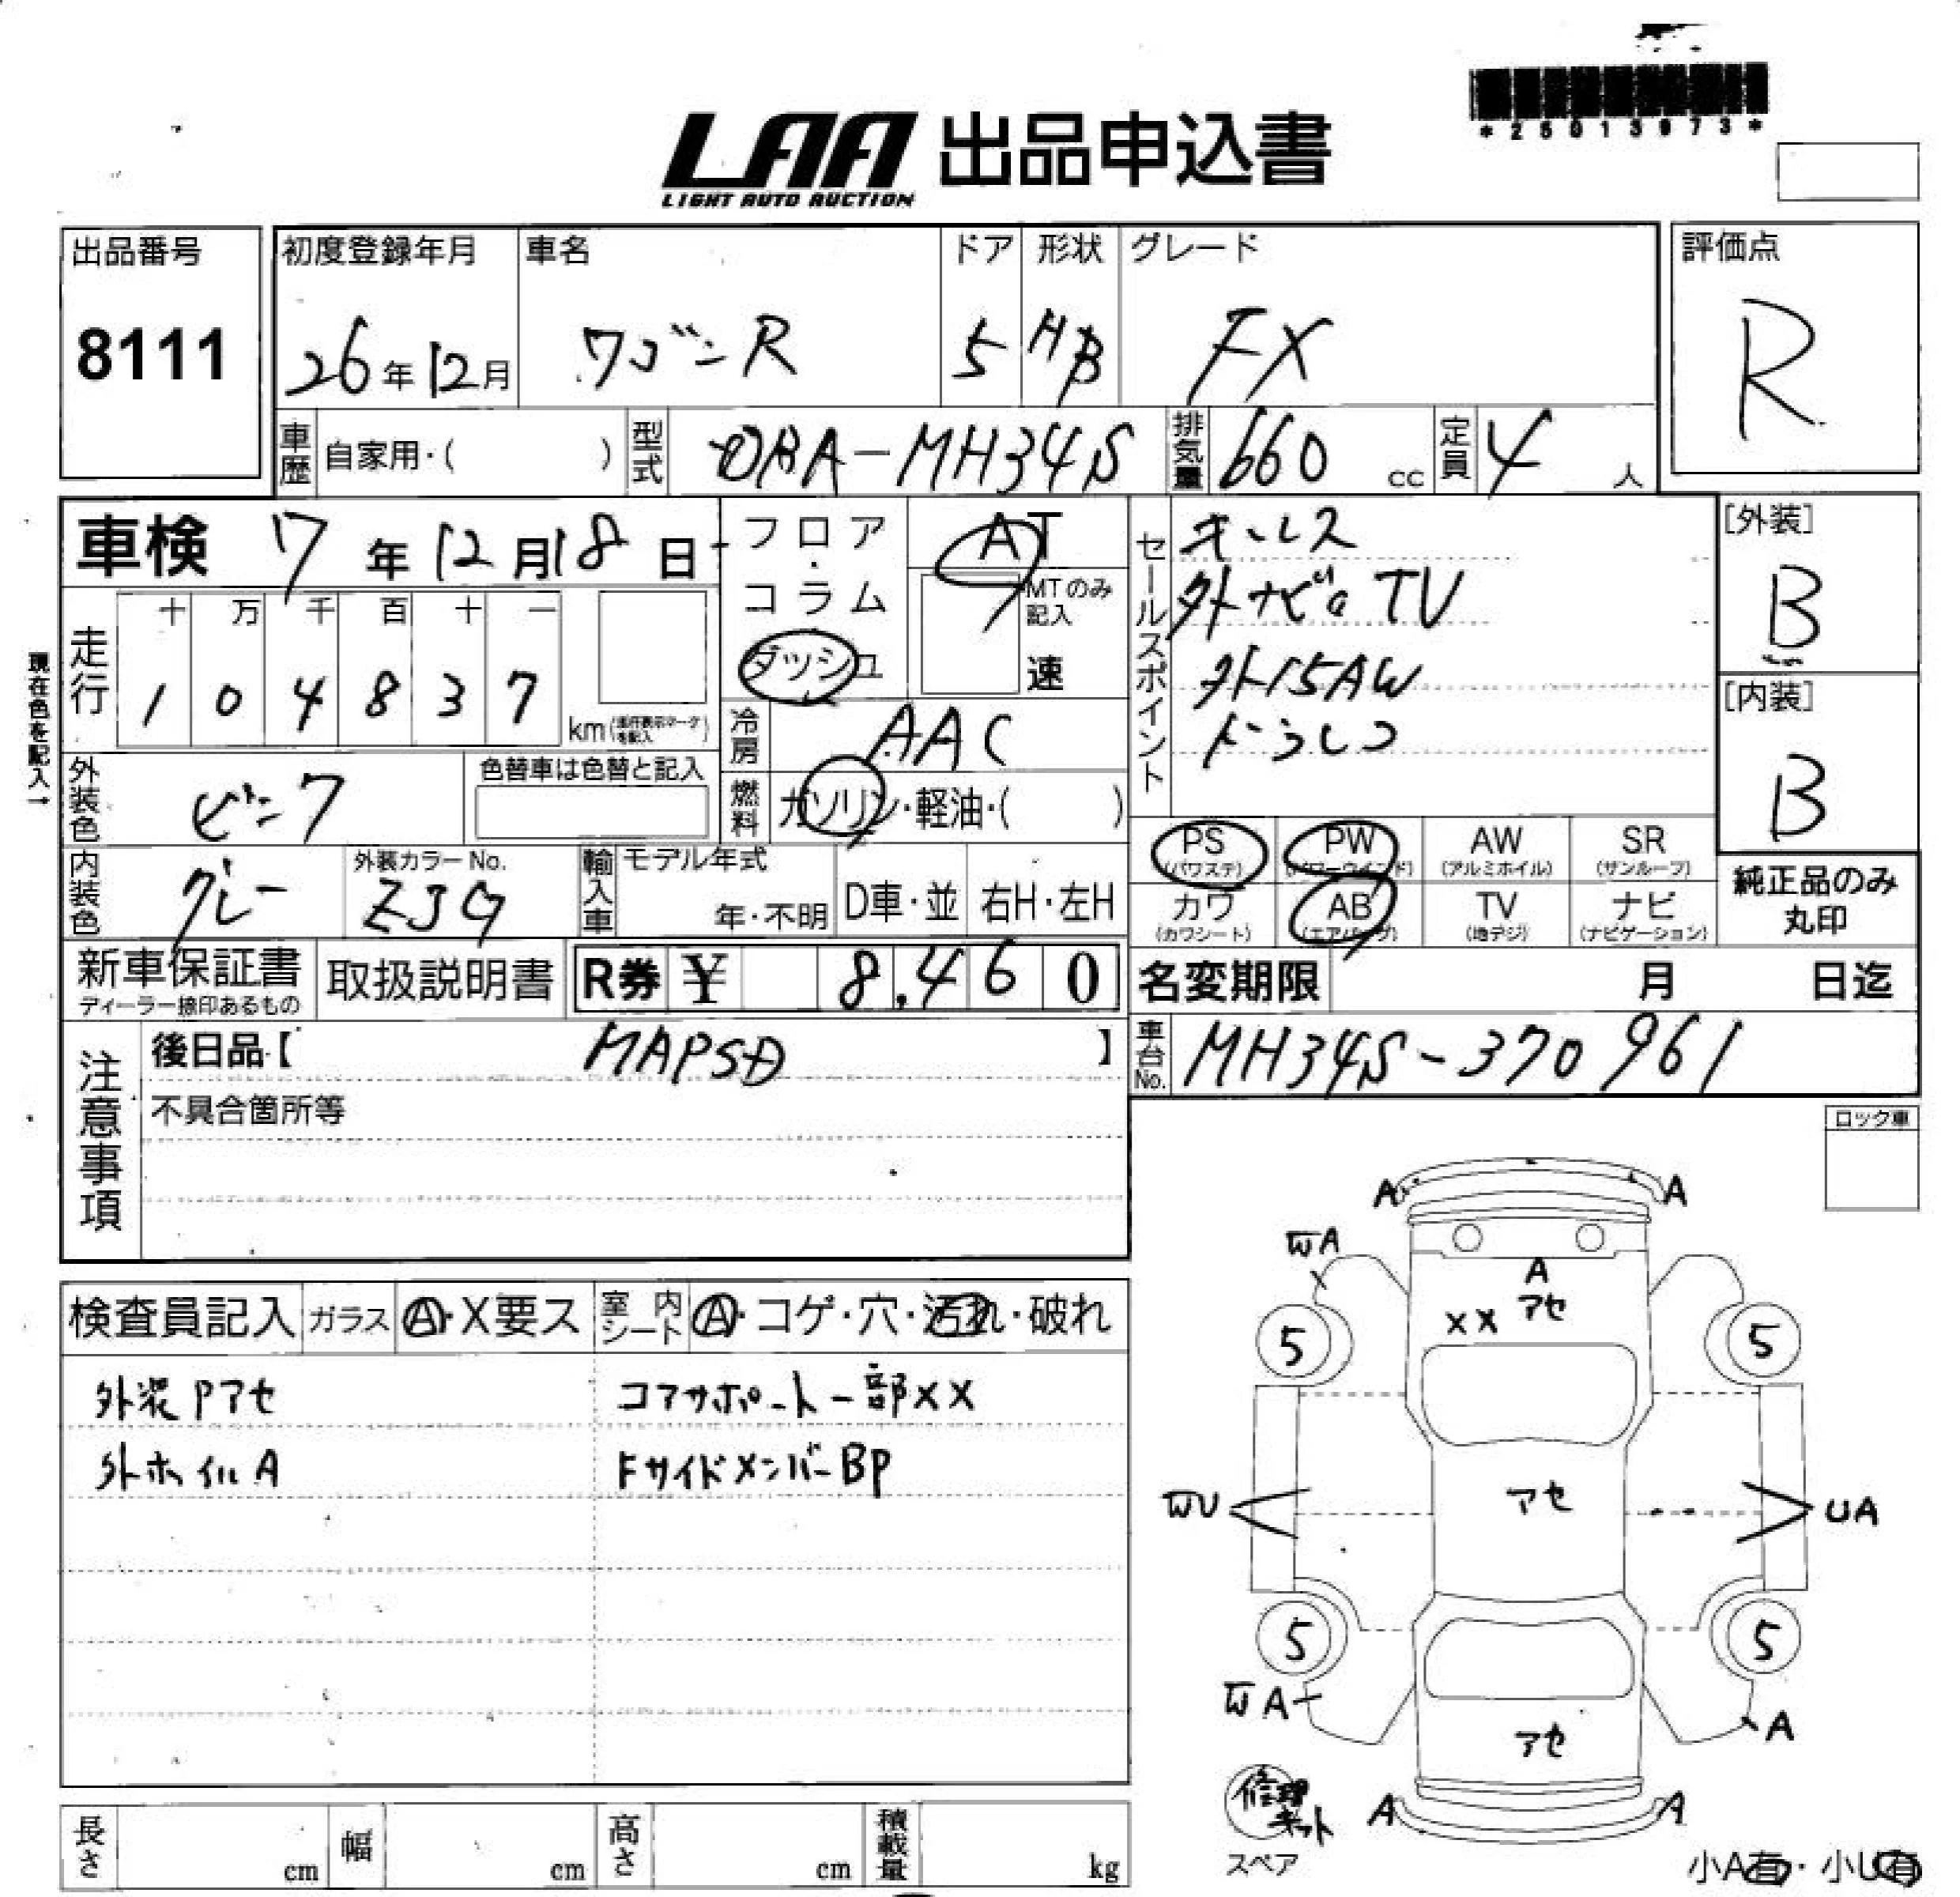 *25013973*
LAA 出品申込書
LIGHT AUTO AUCTION
出品番号
8111
初度登録年月
26年12月
車名
ワゴンR
ドア
5
形状
HB
グレード
FX
評価点
R
車歴
自家用・( )
型式
DBA-MH34S
排気量
660 cc
定員
4 人
車検 7年12月18日
フロア・コラム
ダッシュ
AT
MTのみ記入
速
セールスポイント
キーレス
外ナビ。TV
外15AW
ドラレコ
[外装]
B
[内装]
B
現在色を記入→
走行
十 万 千 百 十 一
1 0 4 8 3 7
km(走行表示マークを記入)
冷房
AAC
外装色
ピンク
色替車は色替と記入
燃料
ガソリン・軽油・( )
PS (パワステ)
PW (パワーウインド)
AW (アルミホイル)
SR (サンルーフ)
カワ (カワシート)
AB (エアバッグ)
TV (地デジ)
ナビ (ナビゲーション)
純正品のみ
丸印
内装色
グレー
外装カラーNo.
ZJG
輸入車
モデル年式
年・不明
D車・並
右H・左H
新車保証書
ディーラー捺印あるもの
取扱説明書
R券 ¥ 8,460
名変期限 月 日迄
車台No.
MH34S-370961
注意事項
後日品【 MAPSD 】
不具合箇所等
ロック車
検査員記入
ガラス
A・X要ス
室内シート
A・コゲ・穴・汚れ・破れ
外装Pアセ
コアサポート一部××
外ホイルA
Fサイドメンバー BP
A A
WA
A
XX アセ
5 5
アセ
WU UA
5 5
WA A
アセ
A A
修理キット
スペア
小A有・小U有
長さ cm
幅 cm
高さ cm
積載量 kg